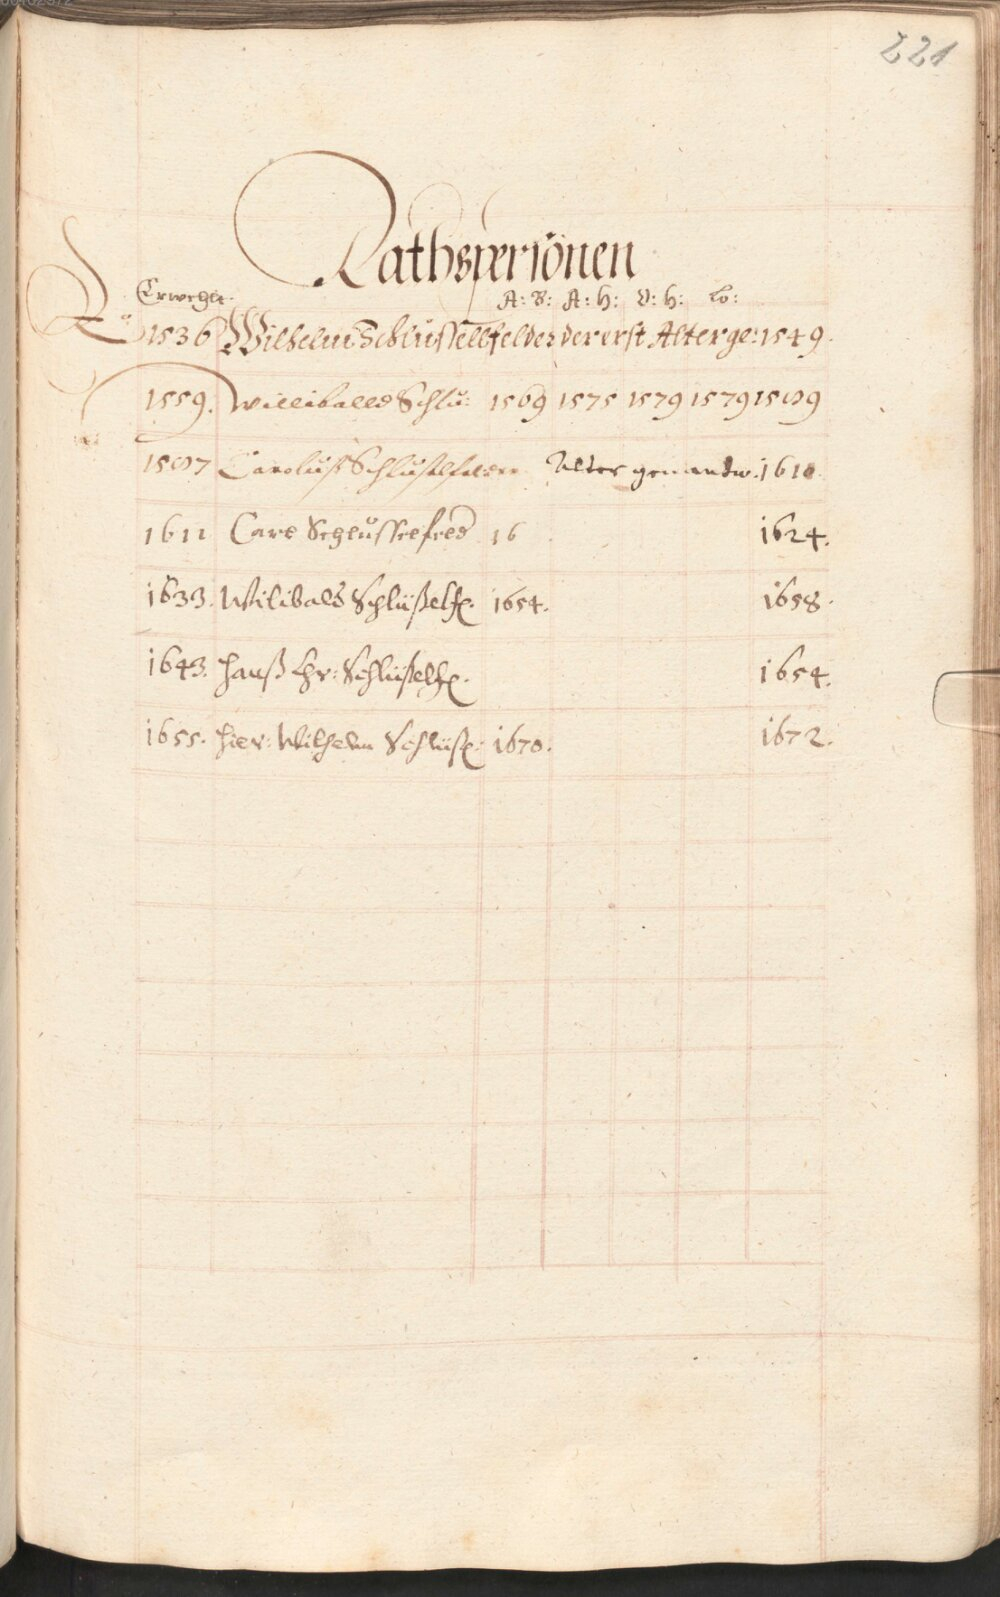 221
Rathspersonen
Erwehlt. A: B: A: H: V: H: Lo:
1536 Wilhelm Schlüsselfelder der erst Alter ge: 1549.
1559. Willibald Schlü: 1569 1575 1579 1579 1589
1587 Carolus Schlüsselfelder Alter genandter. 1610.
1611 Carl Schlüsselfeld 16 1624.
1633. Wilibald Schlüßelf. 1654. 1658.
1643. Hanß Chr: Schlüßelf. 1654.
1655. Hier: Wilhelm Schlüß: 1670. 1672.